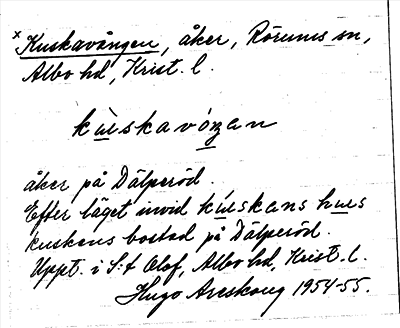 x Kuskavången, åker, Rörums sn,
Albo hd, Krist. l.
kùskavóŋan
åker på Dälperöd.
Efter läget invid kúskans hus
kuskens bostad på Dälperöd.
Uppt. i S:t Olof, Albo hd, Krist. l.
Hugo Areskoug 1954-55.